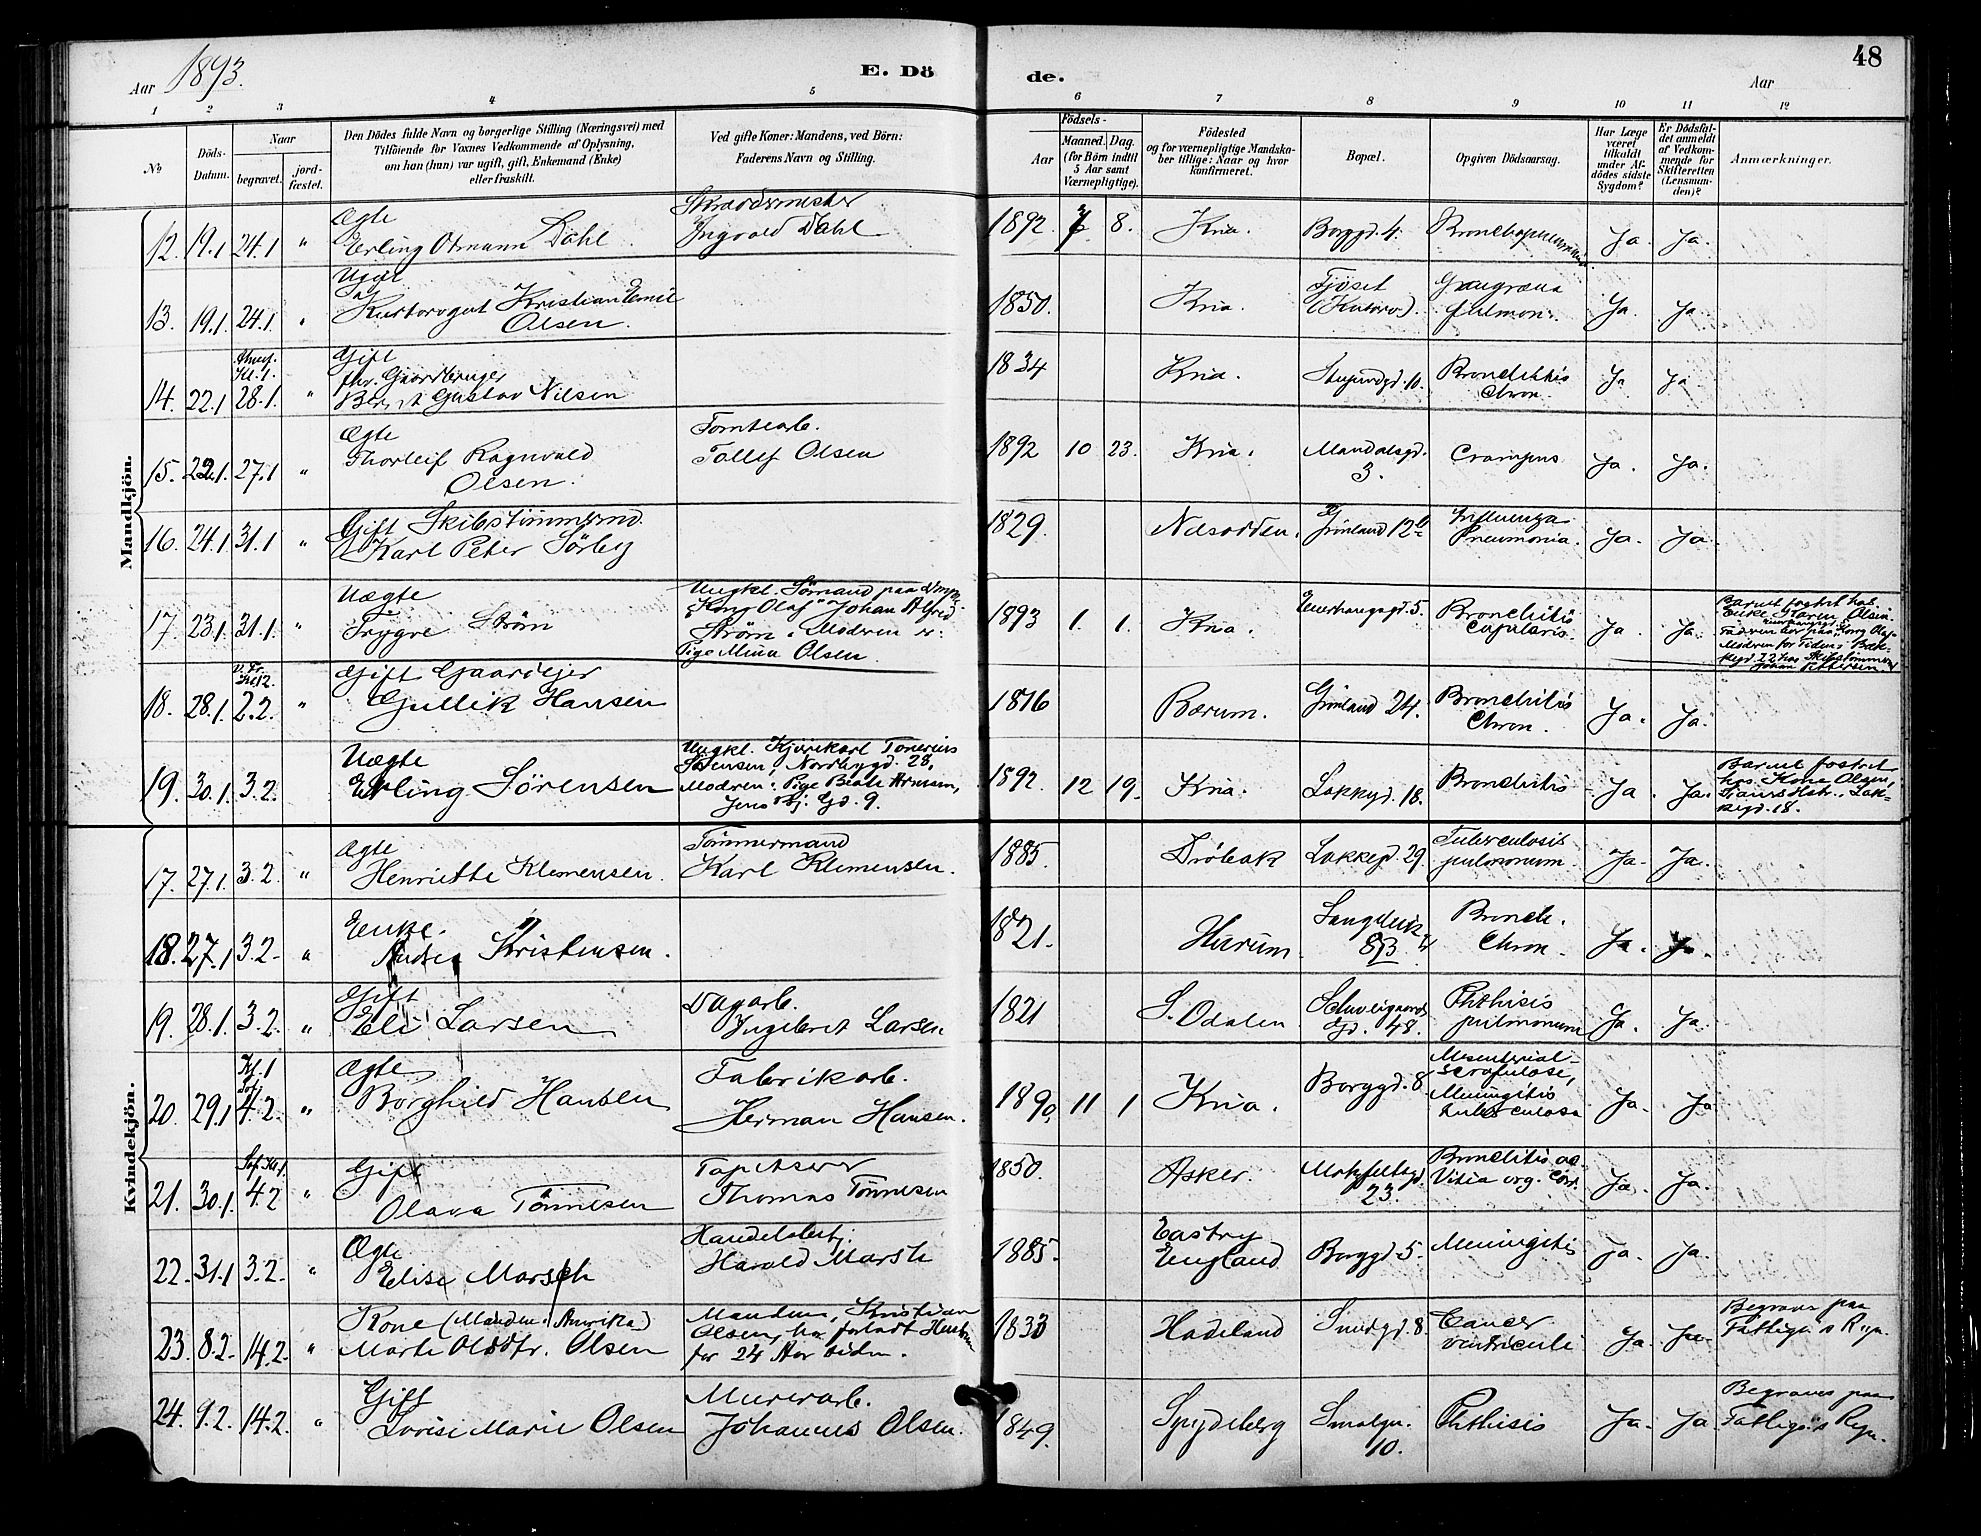 Aar 1893.
E. Dö
de.
Aar
48
1 2 3 4 5 6 7 8 9 10 11 12
No
Döds-
Datum.
Naar
begravet.
jord-
fæstet.
Den Dödes fulde Navn og borgerlige Stilling (Næringsvei) med
Tilföiende for Voxnes Vedkommende af Oplysning,
om han (hun) var ugift, gift, Enkemand (Enke)
eller fraskilt.
Ved gifte Koner: Mandens, ved Börn:
Faderens Navn og Stilling.
Födsels-
Aar
Maaned.
Dag.
(for Börn indtil
5 Aar samt
Værnepligtige).
Födested
og for værnepligtige Mandska-
ber tillige: Naar og hvor
konfirmeret.
Bopæl.
Opgiven Dödsaarsag.
Har Læge
været
tilkaldt
under Af-
dödes sidste
Sygdom?
Er Dödsfal-
det anmeldt
af Vedkom-
mende for
Skifteretten
(Lensman-
den)?
Anmærkninger.
Mandkjön.
12. 19.1 24.1 " Ægte Erling Otmann Dahl. Skræddermester Ingvald Dahl 1892. 8. Kria. Borggd. 4. Bronchopneumonia. Ja. Ja.
13. 19.1. 24.1. " Ugift Kristian Emil Olsen. 1850. Kria. Ja. Ja
14. 22.1 28.1. " Kl. 1. Gift fhv. Gaardbruger Bernt Gustav Nilsen 1834 Kria. 10. Bronchitis Chron. Ja Ja
15. 22.1. 27.1 " Ægte Thorleif Ragnvald Olsen. Tomtearb. Tollef Olsen 1892 10 23. Kria. Mandalsgd. 3. Crampus Ja. Ja.
16. 24.1 31.1 " Gift Skibstømmermd. Karl Peter Sörby 1829. Nesodden. Grönland 12 b Influenza Pneumonia. Ja. Ja.
17. 23.1 31.1. " Uægte Trygve Ström Ungkl. Sömand paa "Kong Olaf" Johan Alfred Ström. Modren er: Pige Mina Olsen. 1893 1. 1. Kria. Enerhaugsgd. 5. Bronchitis Capilaris. Ja Ja. Barnet fostret hos Enke Karen Olsen.
18. 28.1. 2.2. " Kl 12. Gift Gaardejer Gullik Hansen 1816 Bærum. Grönland 24. Bronchitis Chron. Ja. Ja.
19. 30.1. 3.2. Uægte Erling Sørensen Ungkl. Kjörekarl Tonerius Sörensen, Nordbygd. 28, Modren: Pige Beate Arnesen, Jens Bj. Gd. 9. 1892. 12 19. Kria. Lakkegd. 18. Bronchitis Ja. Ja. Barnet fostret hos Kone Olsen, Lakkegd. 18.
Kvindekjön.
17. 27.1. 3.2. " Ægte Henriette Klemensen. Tömmermand Karl Klemensen. 1885. Dröbak Lakkegd. 29. Tuberculosis pulmonum. Ja. Ja.
18. 27.1 3.2. " Enke. Kristensen. 1821. Hurum. Bronch. Chron. Ja. Ja.
19. 28.1. 3.2. " Gift Eli Larsen Dagarb. Ingebret Larsen 1821 S. Odalen Schweigaards Gd. 48. Phthisis pulmonum Ja. Ja.
20. 29.1 4.2. " Kl. 1 Ægte Borghild Hansen Fabrikarb. Herman Hansen. 1890. 11 1 Kria. Borggd. 8 Mesenterial- scrofulose, Meningitis tuberculosa Ja. Ja
21. 30.1. 4.2 " Gift Olava Tönnesen Tapetserer Thomas Tönnesen 1850. Asker. Motzfeltsgd. 23. Bronchitis ac. Vitia org. Cord. Ja. Ja.
22. 31.1 3.2. " Ægte Elise Marsch Handelsbetj. Harold Marsh 1885. Eastry England Borggd. 5. Meningitis Ja. Ja.
23. 8.2. 14.2. " Kone (Manden i Amerika) Marte Olsdtr. Olsen Manden, Kristian Olsen, har forladt Hustruen for 24 Aar siden. 1833 Hadeland Smedgd. 8. Cancer ventriculi Ja. Ja. Begraves paa Fattigv.s Regn.
24. 9.2. 14.2. " Gift Lovise Marie Olsen Murerarb. Johannes Olsen. 1849. Spydeberg Smalgn. 10. Phthisis Ja. Ja Begraves paa Fattigv.s Regn.